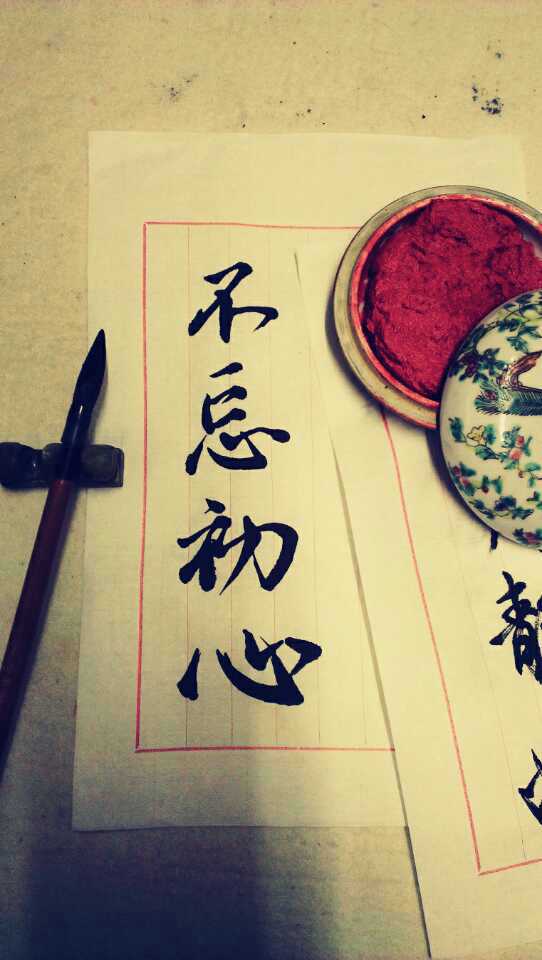 不忘初心
静